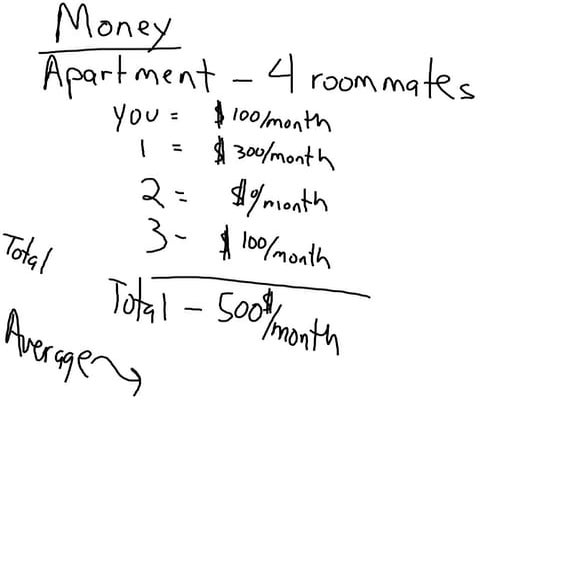 Money
Apartment - 4 roommates
you = $100/month
1 = $300/month
2 = $0/month
3 - $100/month
Total
Total - 500$/month
Average